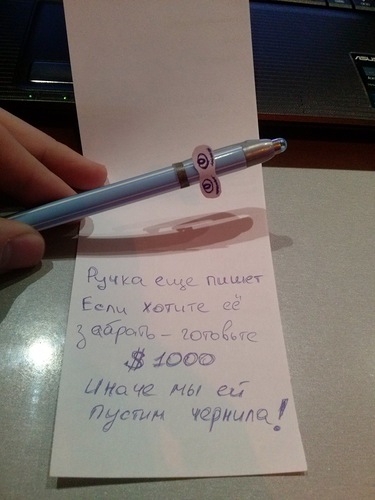 ASUS
Ручка еще пишет
Если хотите её
забрать – готовьте
$ 1000
Иначе мы ей
пустим чернила!